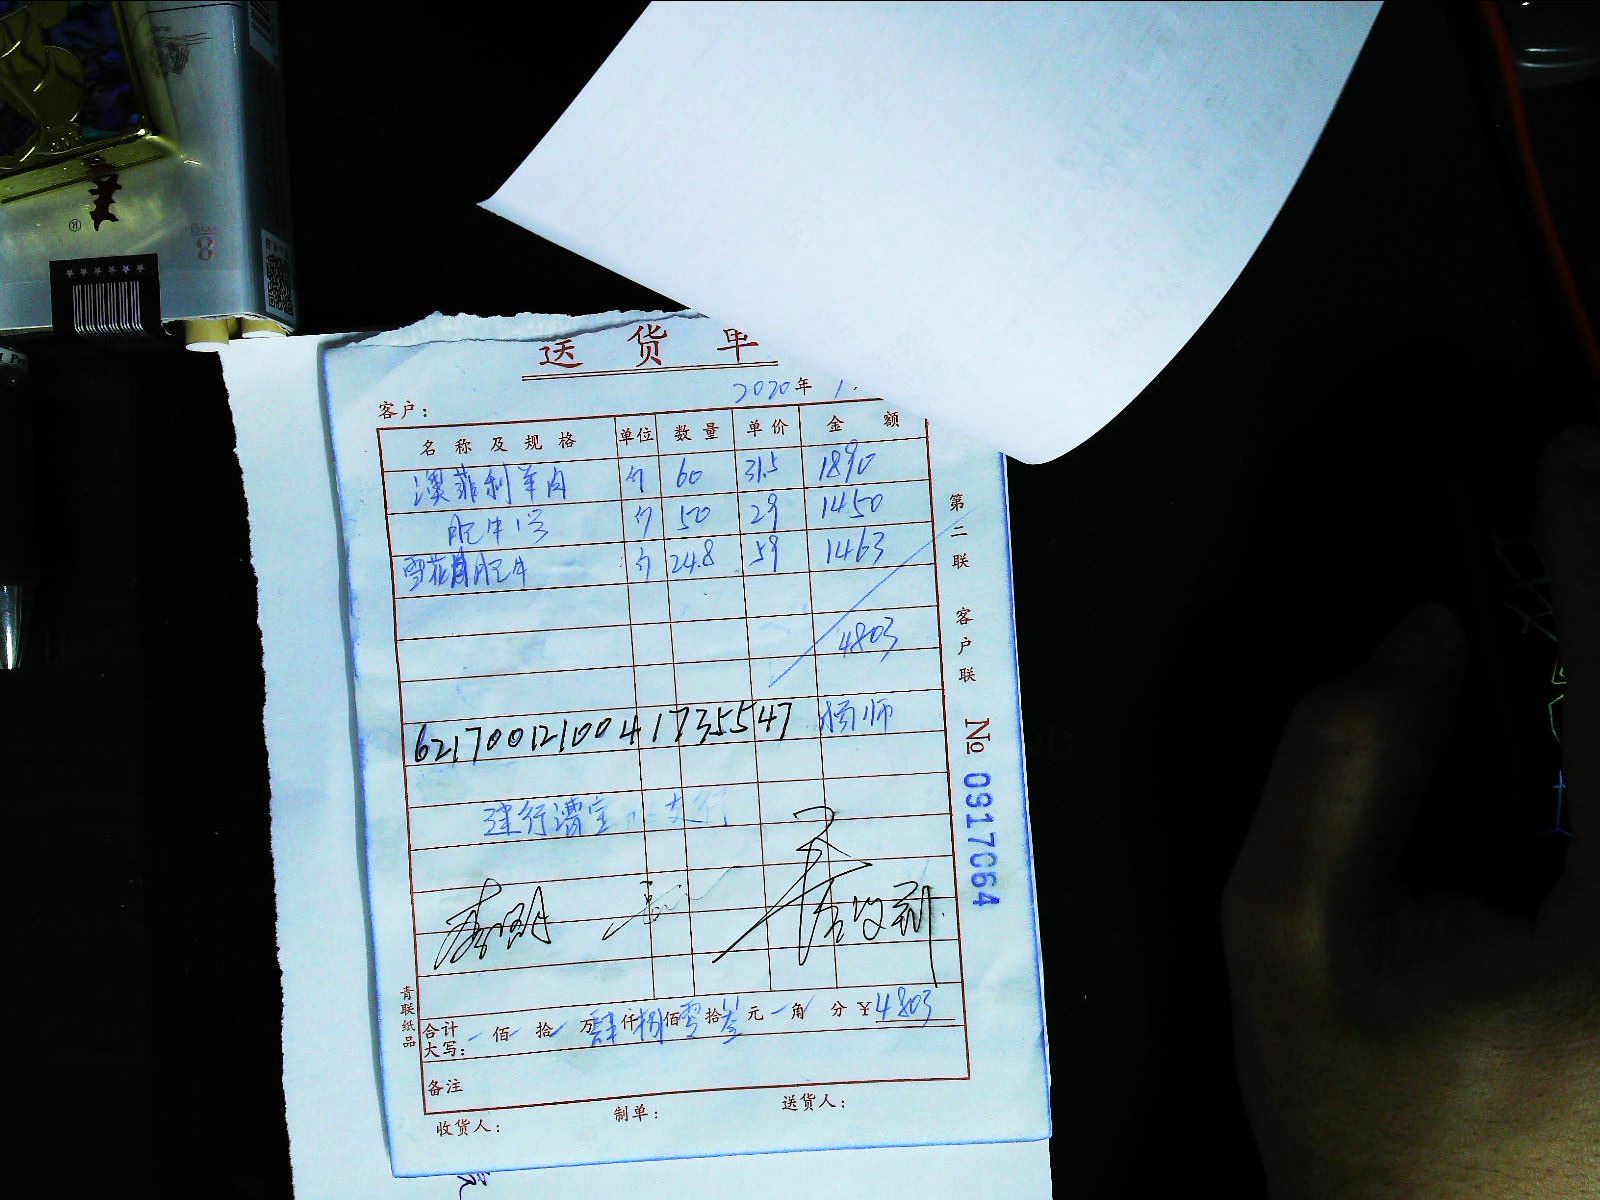 送货单
2020年 1.
客户：
名称及规格 单位 数量 单价 金额
澳菲利羊肉 斤 60 31.5 1890
肥牛1号 斤 50 29 1450
雪花肥牛 斤 24.8 59 1463
4803
6217001210041735547 杨师
建行漕宝 支行
李明
合计大写： 佰 拾 万 肆仟捌佰零拾叁元 角 分 ¥4803
备注
收货人： 制单： 送货人：
第二联 客户联
№ 0917064
青联纸品
®
8